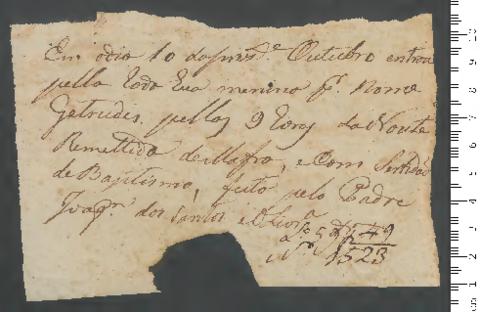 Em o dia 10 do mes de Outubro entrou
pella Roda hua menina pr. Nome
Getrudes. pellas 9 horas da Noute
Remettida de Mafra, e Com Sertidão
de Baptismo, feito pelo Padre
Joaqm. dos Santos
549
1523